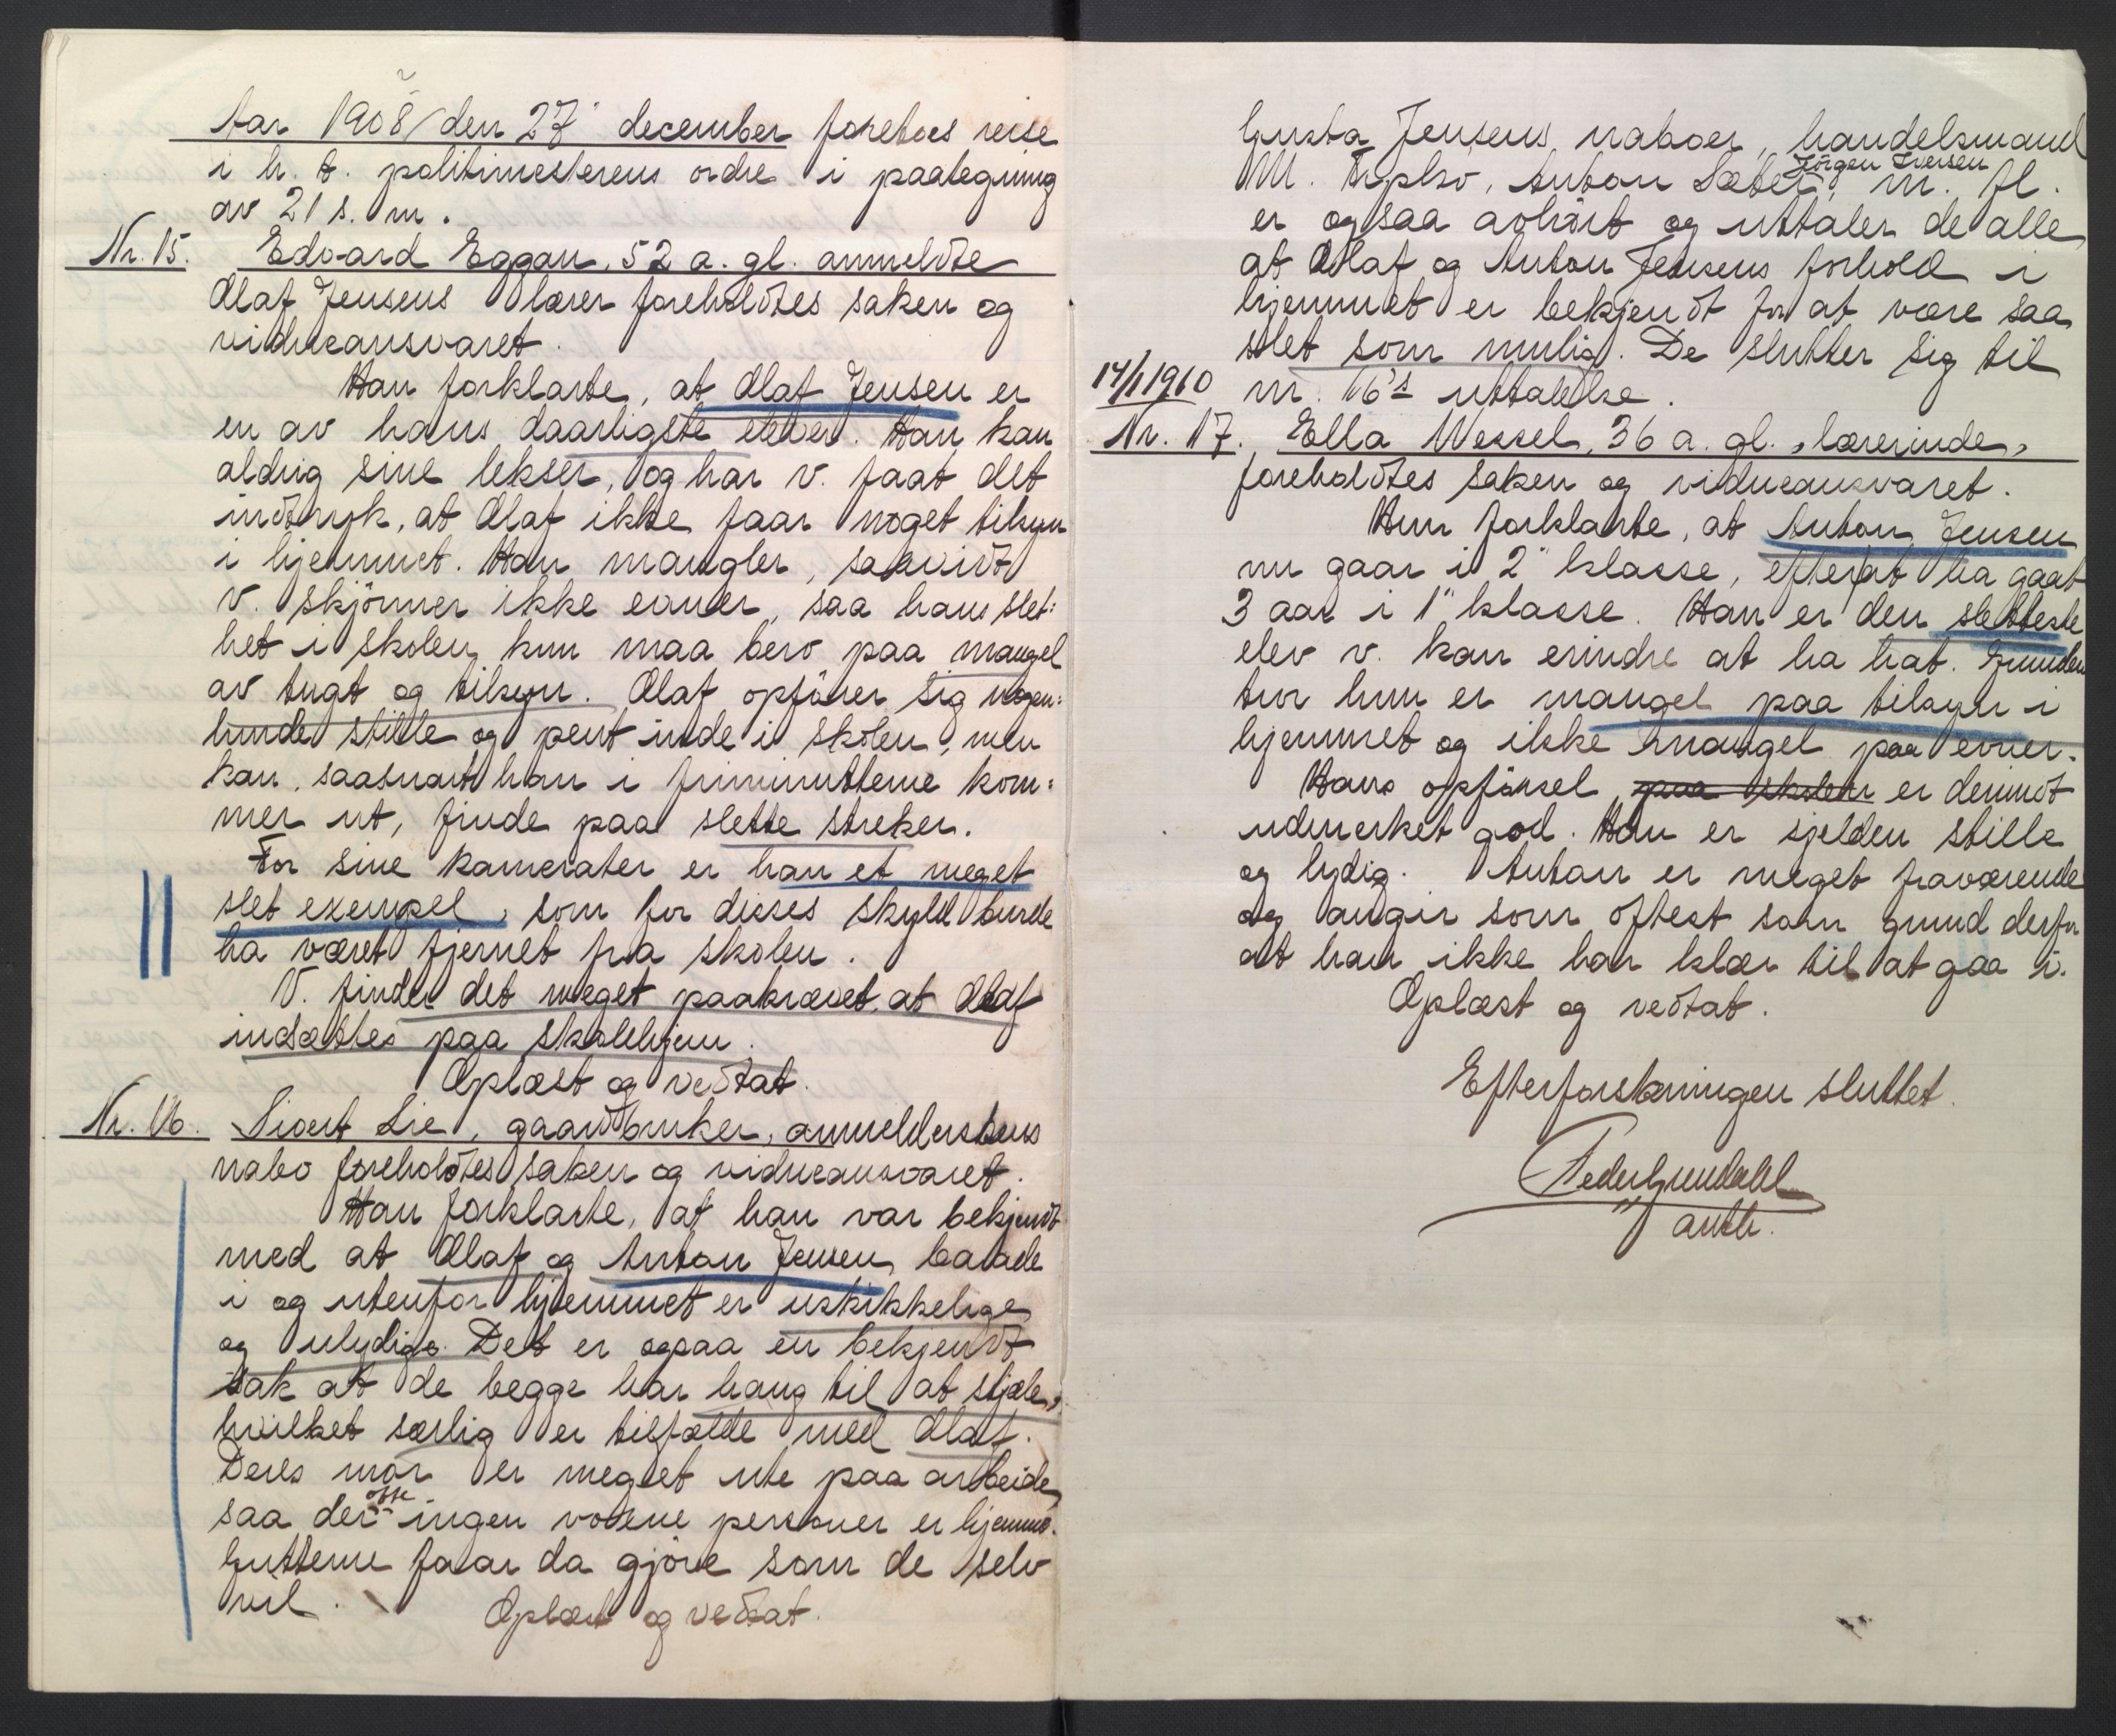 Aar 1908 den 27' december foretoes reise
i h. t. politimesterens ordre i paategning
av 21 s. m.
Nr. 15. Edvard Eggan, 52 a. gl. anmeldte
Olaf Jensens lærer foreholdtes saken og
vidneansvaret.
Han forklarte, at Olaf Jensen er
en av hans daarligste elever. Han kan
aldrig sine lekser, og har v. faat det
indtryk, at Olaf ikke faar noget tilsyn
i hjemmet. Han mangler, saavidt
v. skjønner ikke evner, saa hans slet=
het i skolen kun maa bero paa mangel
av tugt og tilsyn. Olaf opfører sig nogen=
lunde stille og pent inde i skolen, men
kan, saasnart han i friminutterne kom=
mer ut, finde paa slette streker.
For sine kamerater er han et meget
slet exempel, som for disses skyld burde
ha været fjernet fra skolen.
V. finder det meget paakrævet, at Olaf
indsættes paa skolehjem.
Oplæst og vedtat.
Nr. 16. Sivert Lie, gaardbruker, anmelderskens
nabo foreholdtes saken og vidneansvaret.
Han forklarte, at han var bekjendt
med at Olaf og Anton Jensen baade
i og utenfor hjemmet er uskikkelige
og ulydige. Det er ogsaa en bekjendt
sak at de begge har hang til at stjæle,
hvilket særlig er tilfælde med Olaf.
Deres mor er meget ute paa arbeide,
saa der ofte ingen voksne personer er hjemme.
Gutterne faar da gjøre som de selv
vil. Oplæst og vedtat.
Gusta Jensens naboer, handelsmand
M. , Anton Sæter, Jørgen Iversen m. fl.
er ogsaa avhørt og uttaler de alle
at Olaf og Anton Jensens forhold i
hjemmet er bekjendt for at være saa
slet som mulig. De slutter sig til
nr. 16's uttalelse.
14/1 1910
Nr. 17. Ella Wessel, 36 a. gl., lærerinde,
foreholdtes saken og vidneansvaret.
Hun forklarte, at Anton Jensen
nu gaar i 2" klasse, efterat ha gaat
3 aar i 1" klasse. Han er den sletteste
elev v. kan erindre at ha hat. Grunden
tror hun er mangel paa tilsyn i
hjemmet og ikke mangel paa evner.
Hans opførsel paa skolen er derimot
udmerket god. Han er sjelden stille
og lydig. Anton er meget fraværende
og angir som oftest som grund derfor
at han ikke har klær til at gaa i.
Oplæst og vedtat.
Efterforskningen sluttet.
Peder Grendahl